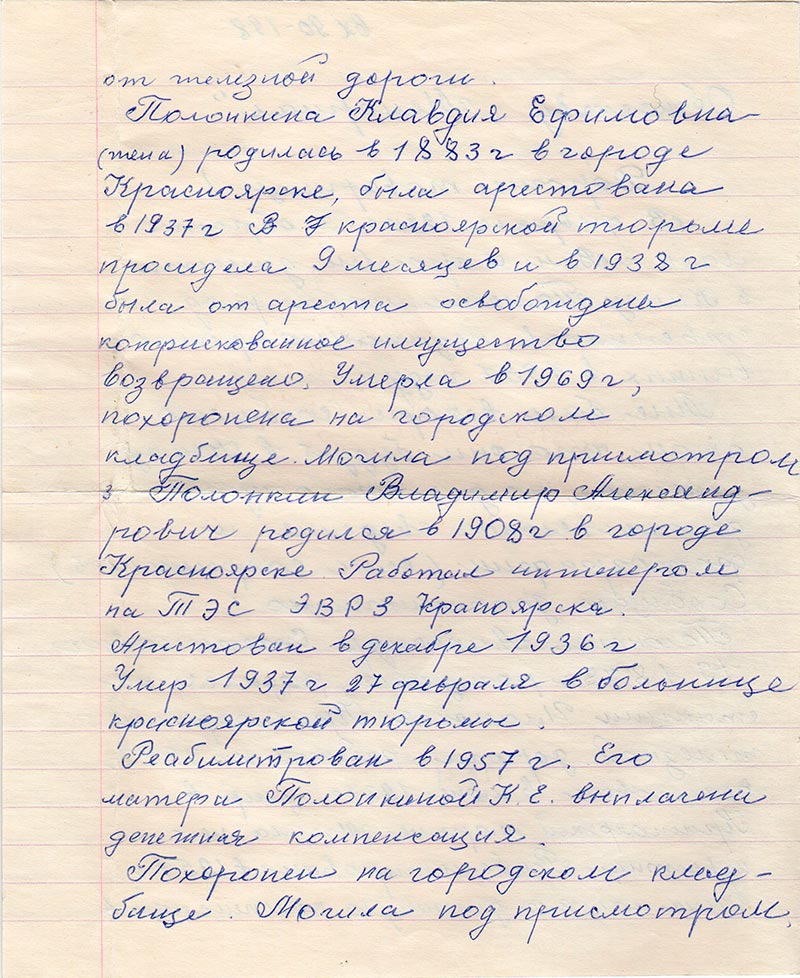 от железной дороги.
Полонкина Клавдия Ефимовна-
(жена) родилась в 1883 г в городе
Красноярске, была арестована
в 1937 г В красноярской тюрьме
просидела 9 месяцев и в 1938 г
была от ареста освобождена
конфискованное имущество
возвращено. Умерла в 1969 г,
похоронена на городском
кладбище. Могила под присмотром
3 Полонкин Владимир Александ-
рович родился в 1908 г в городе
Красноярске. Работал инженером
на ТЭС ЭВРЗ Красноярска.
Аристован в декабре 1936 г
Умер 1937 г 27 февраля в больнице
красноярской тюрьмы.
Реабилитрован в 1957 г. Его
матера Полонкиной К. Е. выплачена
денежная компенсация.
Похоронен на городском клад-
бище. Могила под присмотром.